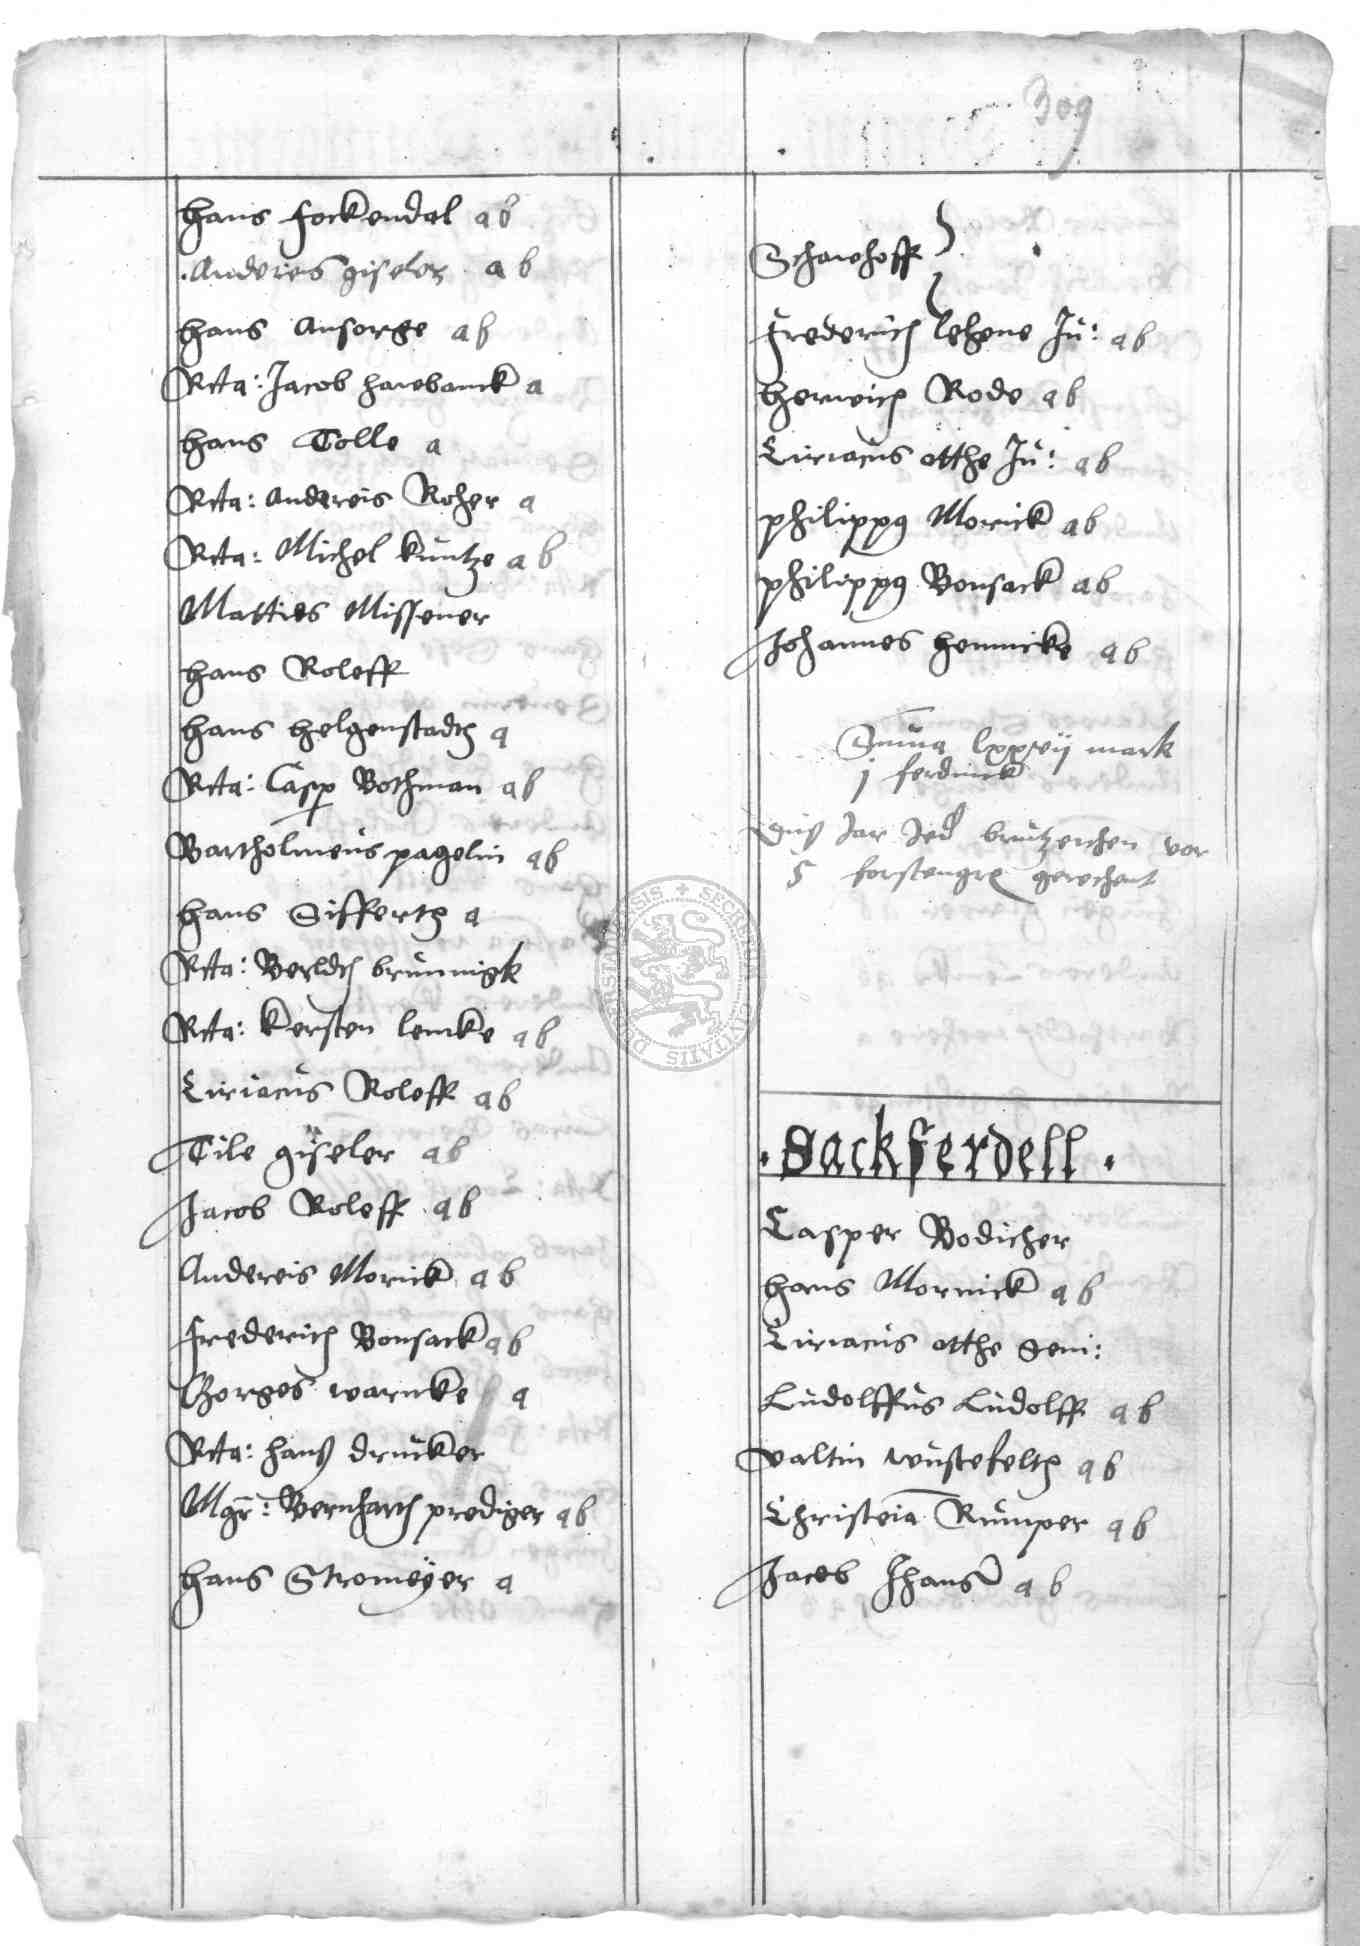 309
hans fockendal ab
Anderies giseler ab
hans Ansorge ab
Rcta: Jacob hawbanck a
hans Tolle a
Rcta: Andereis Roher a
Rcta: Michel kuntze ab
Matties Missener
hans Roleff
hans helgenstadth a
Rcta: Casp Bothman ab
Bartholmeus pagelin ab
hans Siffertth a
Rcta: Berldth brunnigk
Rcta: kersten lemke ab
Ciriacus Roleff ab
Tile giseler ab
Jacob Roleff ab
Andereis Morick ab
frederich Bonsack ab
Gorges warnke a
Rcta: hans drucker
Mgr: Bernharth prediger ab
hans Stromeÿer a
Schawhoff
frederich lehene Ju: ab
herwich Rode ab
Ciriacus otthe Ju: ab
philippus Morick ab
philippus Bonsack ab
Johannes hennicke ab
Suma lxxvij mark
j ferdinck
Jar Jed bruzeichen vor
5 forstengr gerechent
SECRETUM CIVITATIS DUDERSTADENSIS
Sackferdell
Casper Bodicher
hans Mornick ab
Ciriacus otthe seni:
Ludolffus Ludolff ab
valtin wustefelth ab
Christeia Rumper ab
Jacob Jhans ab